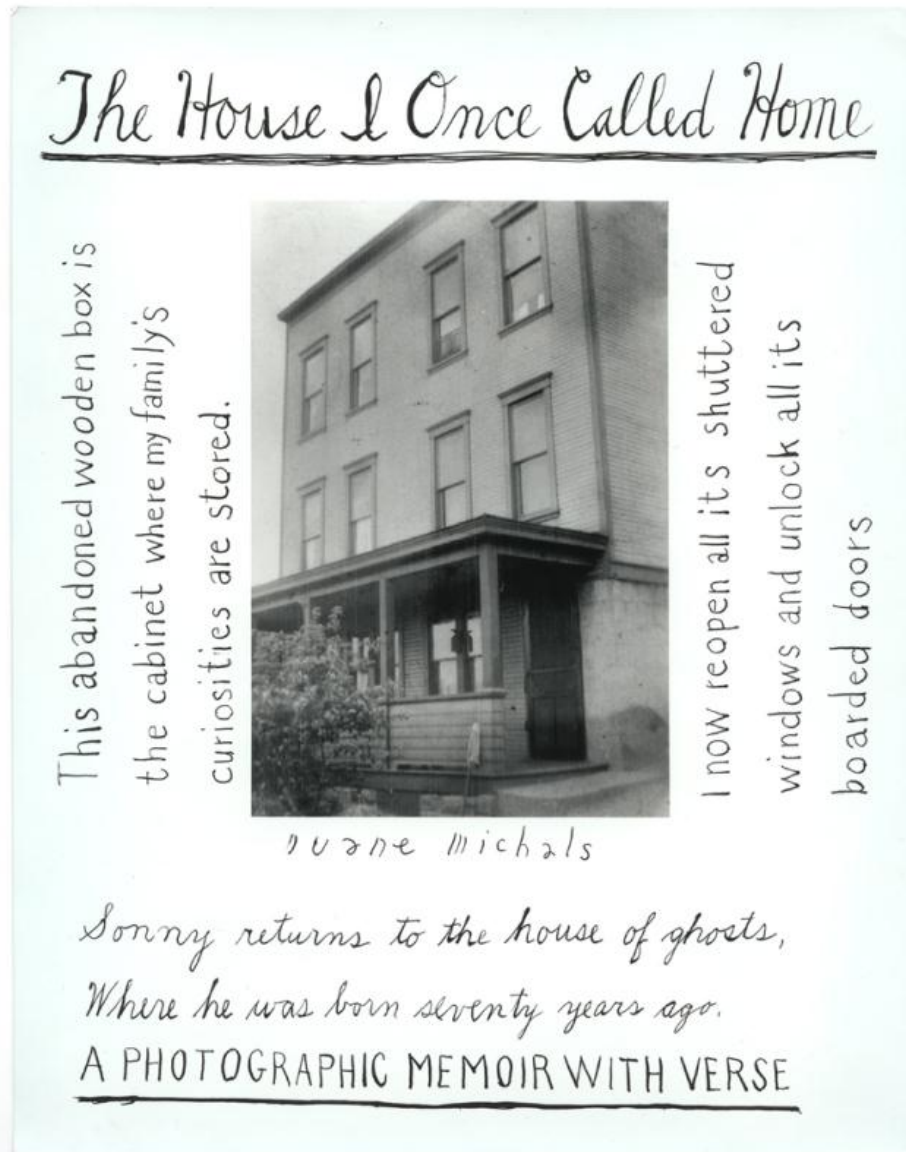 The House I Once Called Home
This abandoned wooden box is
the cabinet where my family's
curiosities are stored.
I now reopen all its shuttered
windows and unlock all its
boarded doors
Duane Michals
Sonny returns to the house of ghosts,
Where he was born seventy years ago.
A PHOTOGRAPHIC MEMOIR WITH VERSE